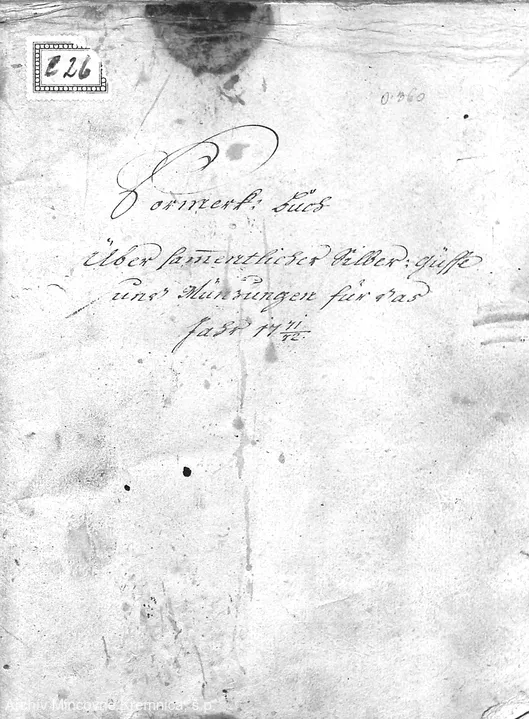 E 26
0.360
Vormerk: Buch
Über sammentlicher Silber: güsse
und Münzungen für das
Jahr 17 71/72.
Archív Mincovne Kremnica, š.p.